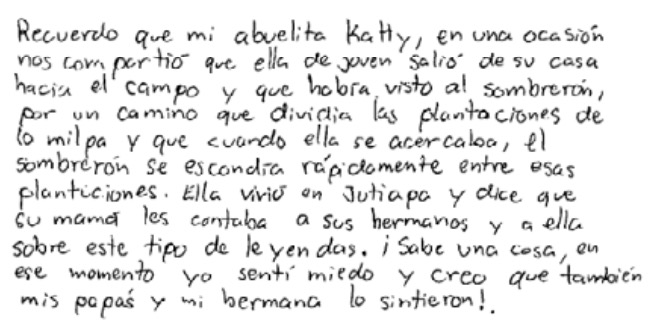 Recuerdo que mi abuelita Katty, en una ocasión
nos compartió que ella de joven salió de su casa
hacia el campo y que había visto al sombrerón,
por un camino que dividia las plantaciones de
la milpa y que cuando ella se acercaba, el
sombrerón se escondía rápidamente entre esas
planticiones. Ella vivió en Jutiapa y dice que
su mamá les contaba a sus hermanos y a ella
sobre este tipo de leyendas. ¡Sabe una cosa, en
ese momento yo sentí miedo y creo que también
mis papás y mi hermana lo sintieron!.